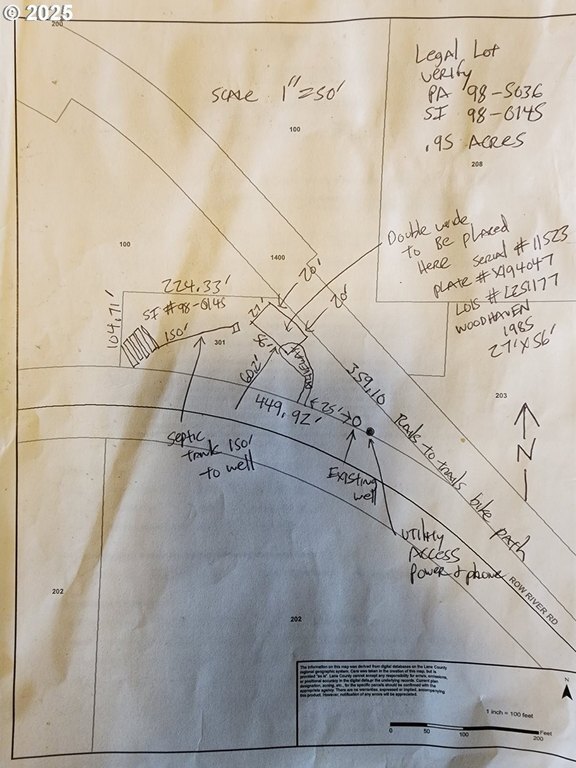 © 2025
200
SCALE 1"=50'
100
Legal Lot
verify
PA 98-5036
SI 98-0145
.95 ACRES
208
Double wide
to Be placed
Here Serial # 11523
plate # X194047
LOIS # L251177
WOODHAVEN
1985
27' X 56'
100
1400
20'
20'
224.33'
SI # 98-0145
150'
104.71'
301
27'
56'
602'
449.92'
←25'→
359.10
Rails to trails bike path
203
N
septic
tank 150'
to well
Existing
well
utility
ACCESS
Power & phone
ROW RIVER RD
202
202
The information on this map was derived from digital databases on the Lane County
regional geographic system. Care was taken in the creation of this map, but is
provided "as is". Lane County cannot accept any responsibility for errors, omissions,
or positional accuracy in the digital data or the underlying records. Current plan
designation, zoning, etc., for specific parcels should be confirmed with the
appropriate agency. There are no warranties, expressed or implied, accompanying
this product. However, notification of any errors will be appreciated.
N
1 inch = 100 feet
0 50 100 200
Feet